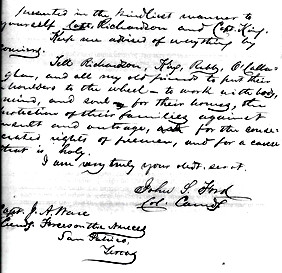 presented in the kindliest manner to
yourself, Capt. Richardson and Capt. King.
Keep me advised of everything by
Tell Richardson, King, Rabb, O'Calla-
ghan, and all my old friends to put their
shoulders to the wheel — to work with body,
mind, and soul for their homes, the
protection of their families against
insult and outrage, for the conse-
crated rights of freemen, and for a cause
that is holy.
I am very truly your obdt. servt.
John S. Ford
Col. Comdg
Capt. J. A. Ware
Comdg Forces on the Nueces
San Patricio,
Texas